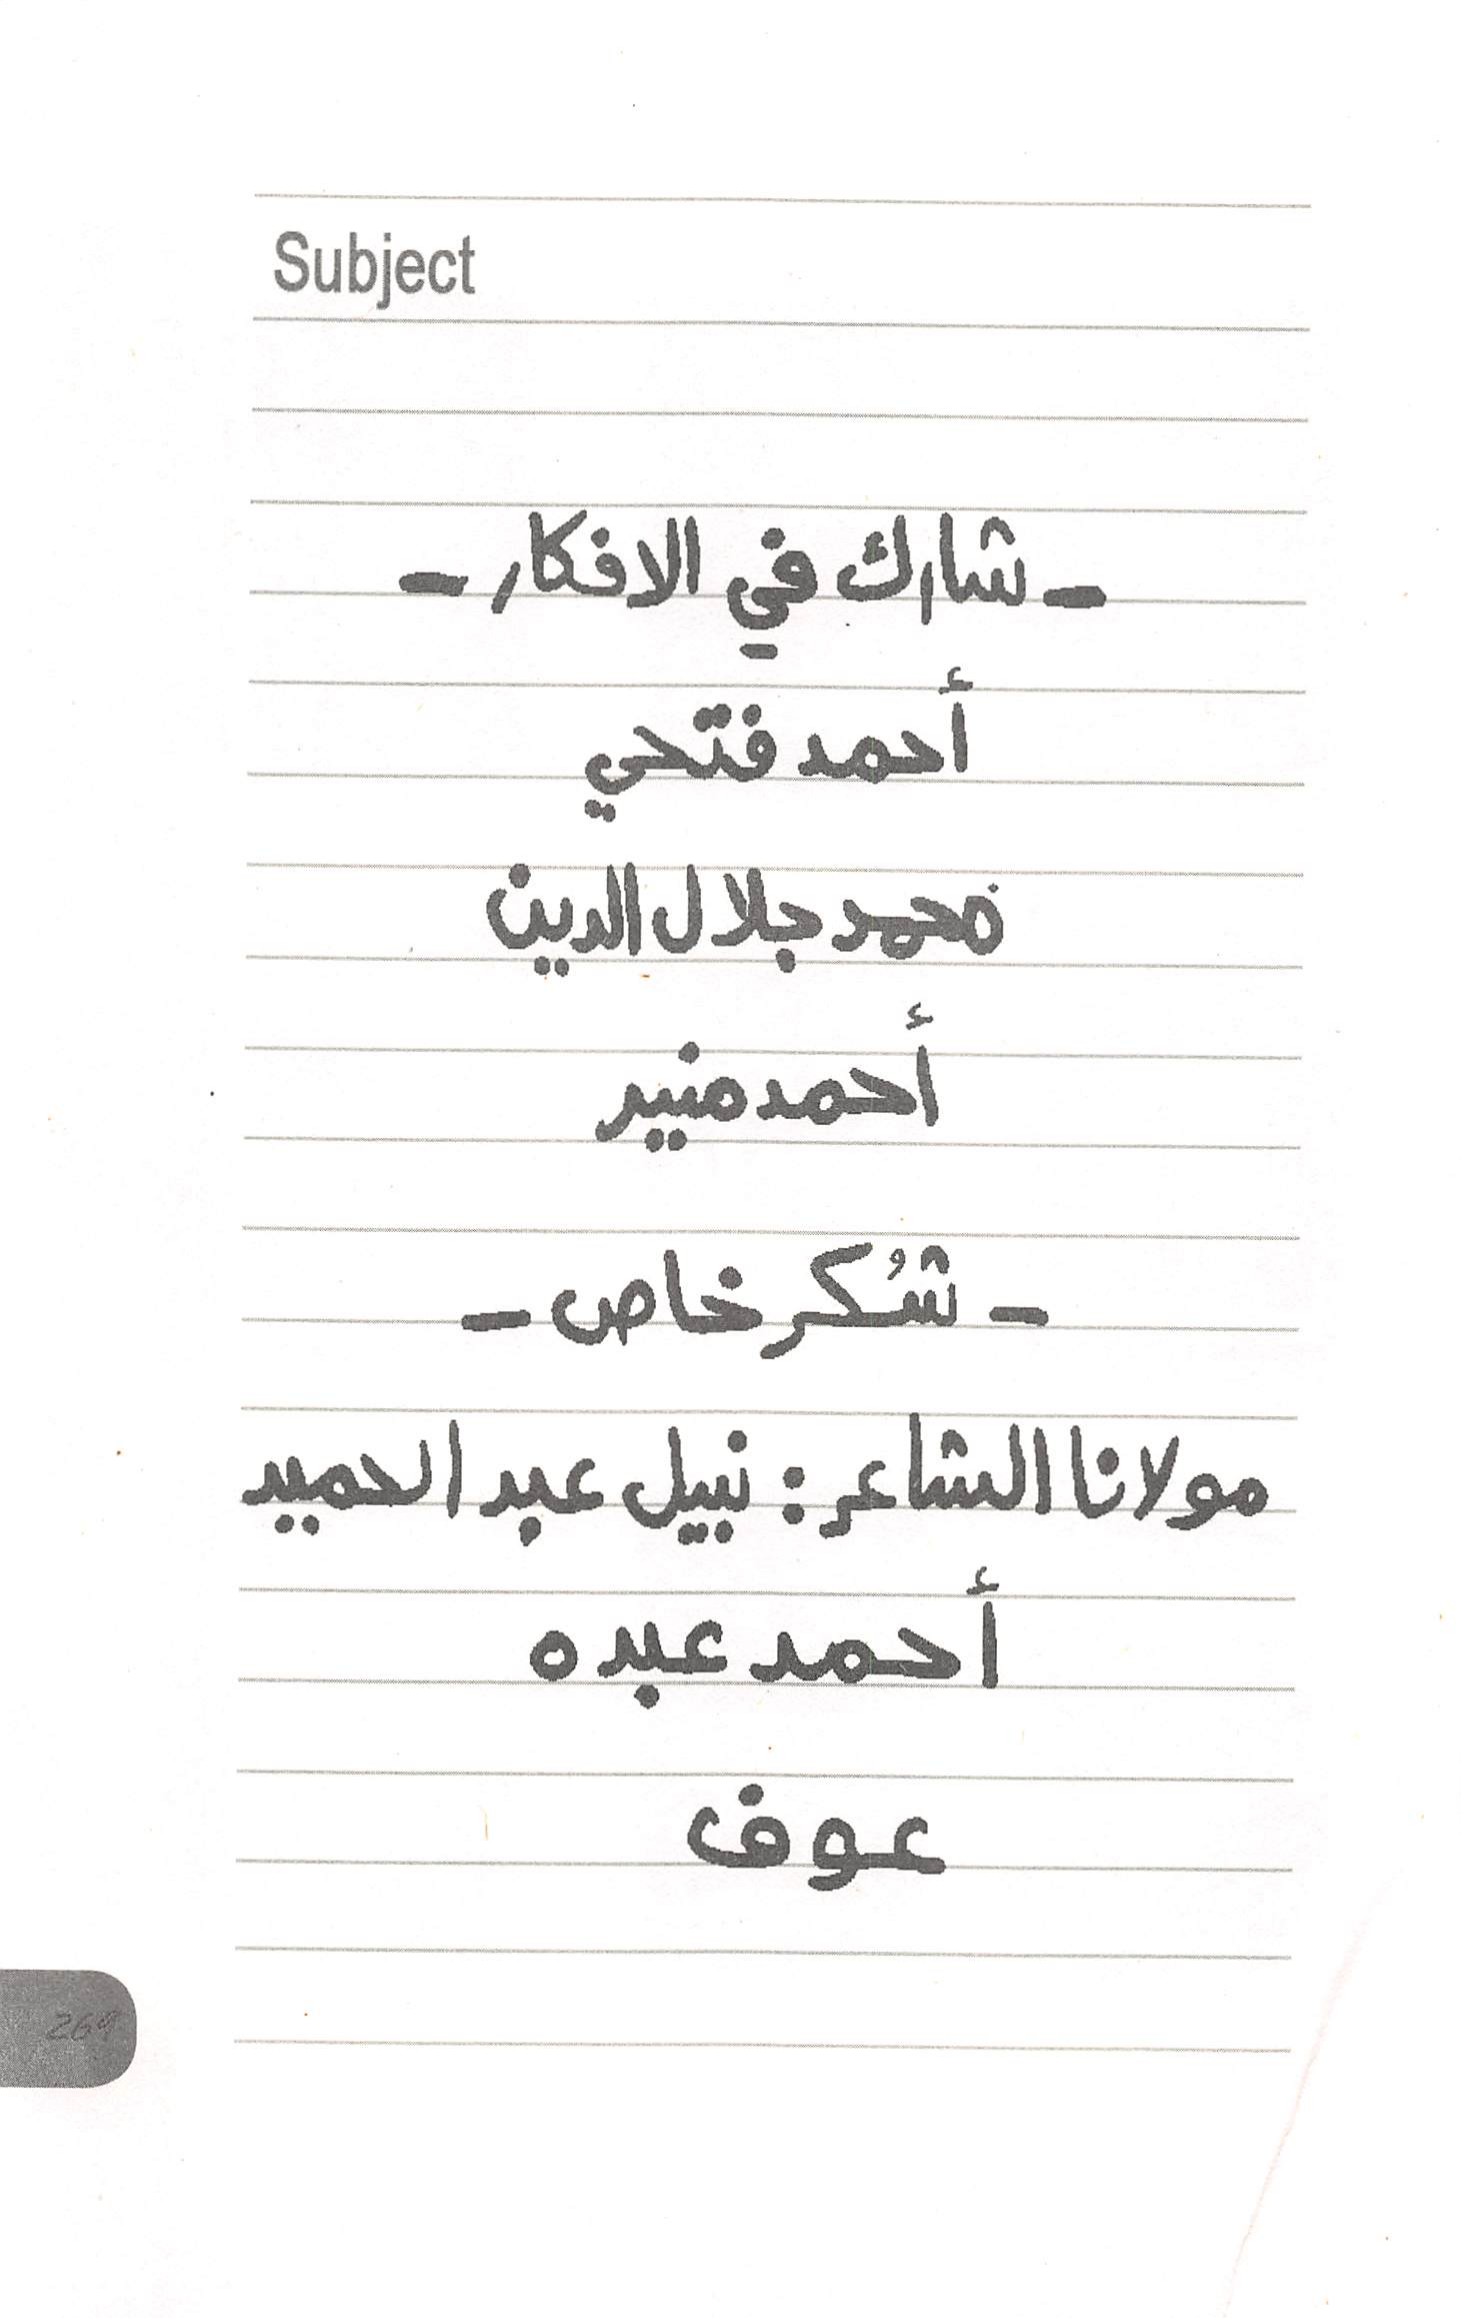 Subject
- شارك في الافكار -
أحمد فتحي
محمد جلال الدين
أحمد منير
- شُكر خاص -
مولانا الشاعر : نبيل عبد الحميد
أحمد عبده
عوف
269